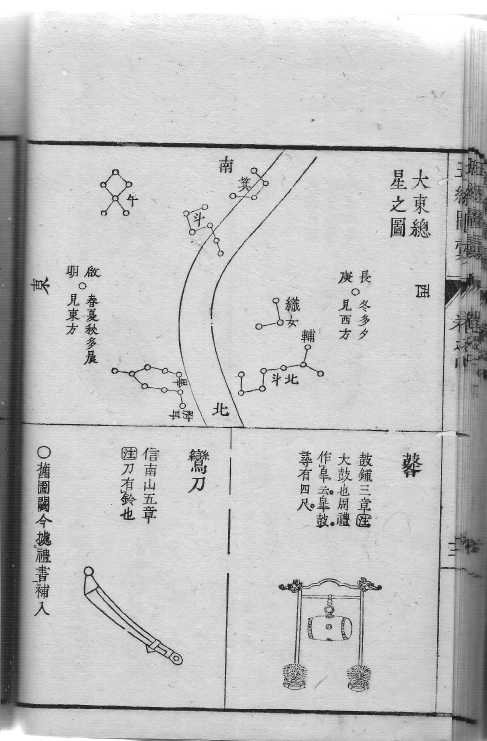 大東總
星之圖
西
長
庚
冬多夕
見西方
織
女
輔
北
斗
南
箕
斗
北
牛
畢
啟
明
春夏秋多晨
見東方
東
鼛
鼓鐘三章注
大鼓也周禮
作皋云皋鼓
尋有四尺
鸞刀
信南山五章
注刀有鈴也
〇舊圖闕今據禮書補入